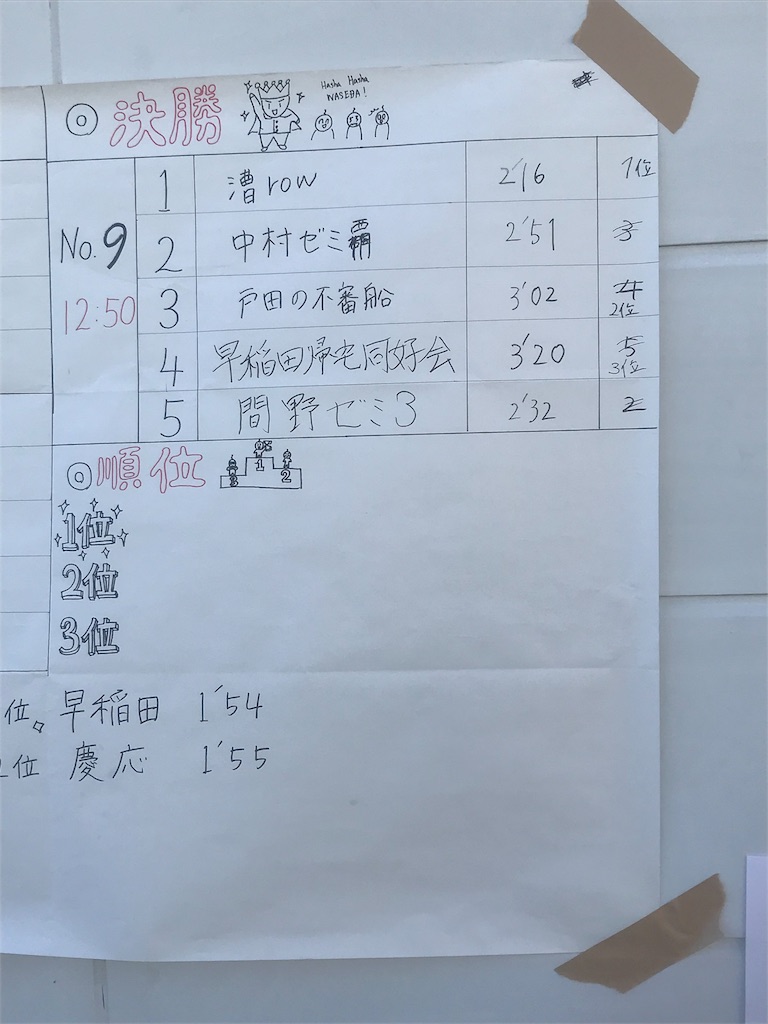 ◎決勝
Hasha Hasha
WASEDA!
No.9
12:50
1 漕row 2'16 1位
2 中村ゼミ覇 2'51 3
3 戸田の不審船 3'02 4
2位
4 早稲田帰宅同好会 3'20 5
3位
5 間野ゼミ3 2'32 2
◎順位
3 1 2
1位
2位
3位
位。早稲田 1'54
位 慶応 1'55